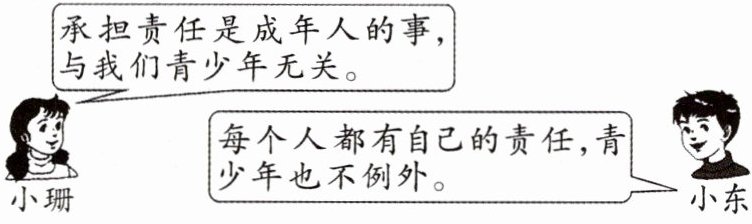 承担责任是成年人的事，
与我们青少年无关。
每个人都有自己的责任，青
少年也不例外。
小珊
小东